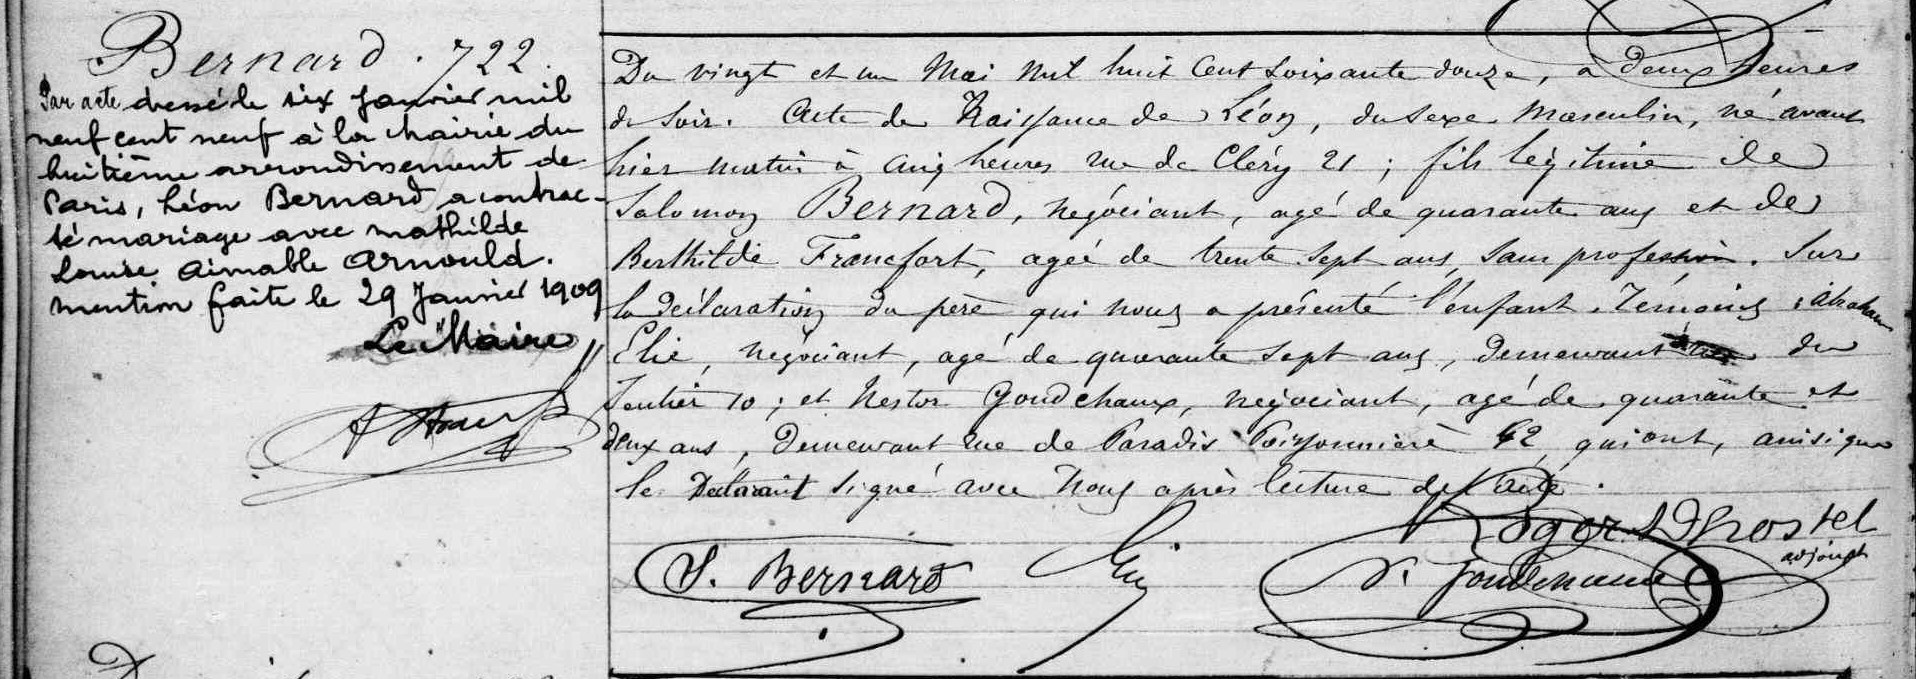 Bernard. 722.
Par acte dressé le six janvier mil
neuf cent neuf à la Mairie du
huitième arrondissement de
Paris, Léon Bernard a contrac-
té mariage avec Mathilde
Louise Aimable Arnould.
mention faite le 29 Janvier 1909
Le Maire
Du vingt et un Mai mil huit cent soixante douze, à deux heures
du soir. Acte de Naissance de Léon, du sexe masculin, né avant
hier matin à cinq heures rue de Cléry 21 ; fils légitime de
Salomon Bernard, négociant, agé de quarante ans et de
Berthilde Francfort, agée de trente sept ans, sans profession. Sur
la déclaration du père qui nous a présenté l'enfant. Témoins : Abraham
Elie, négociant, agé de quarante sept ans, demeurant du
Sentier 10 ; et Nestor Goudchaux, négociant, agé de quarante et
deux ans, demeurant rue de Paradis Poissonnière 42, qui ont, ainsi que
le Déclarant signé avec Nous après lecture de l'acte.
Roger Dhostel
adjoint
S. Bernard Elie N. Goudchaux